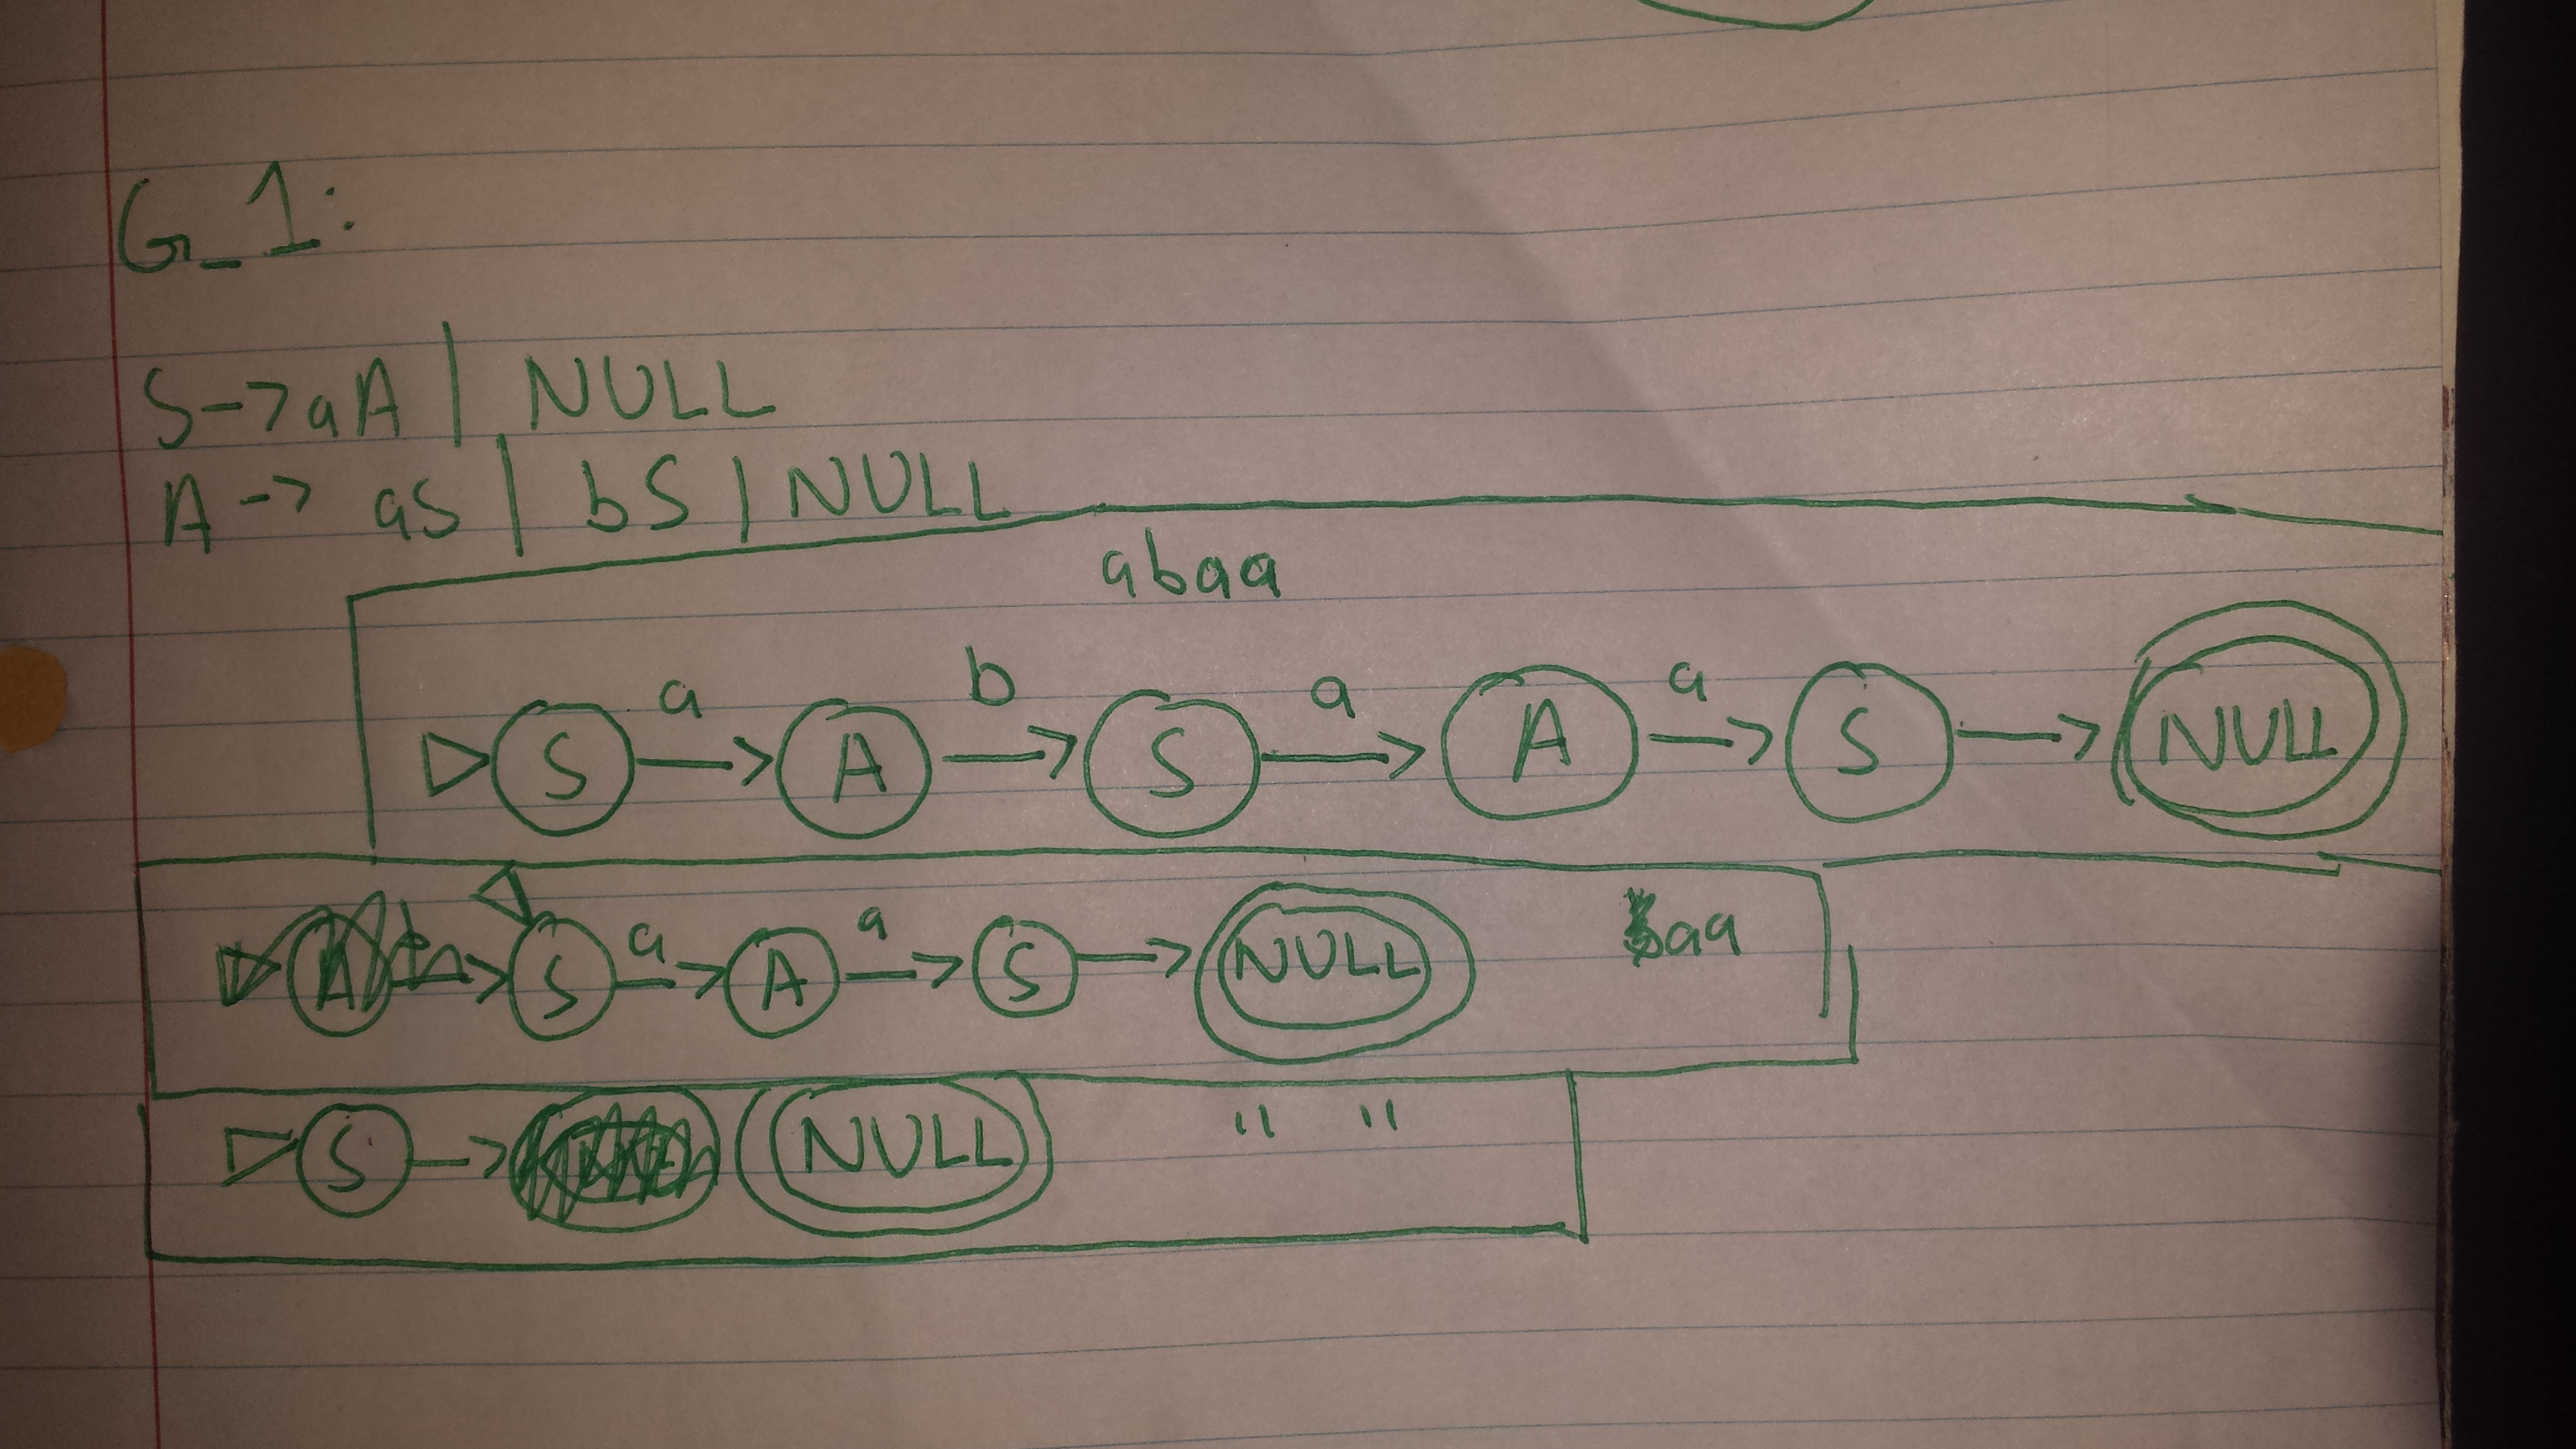 G_1:
S->aA | NULL
A -> aS | bS | NULL
abaa
a b a a
S -> A -> S -> A -> S -> NULL
a a
S -> A -> S -> NULL aa
S -> NULL " "